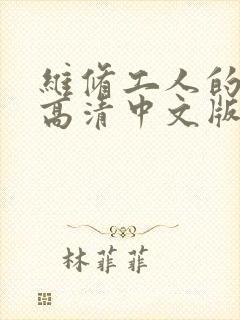 維脩工人的
高清中文版
林菲菲